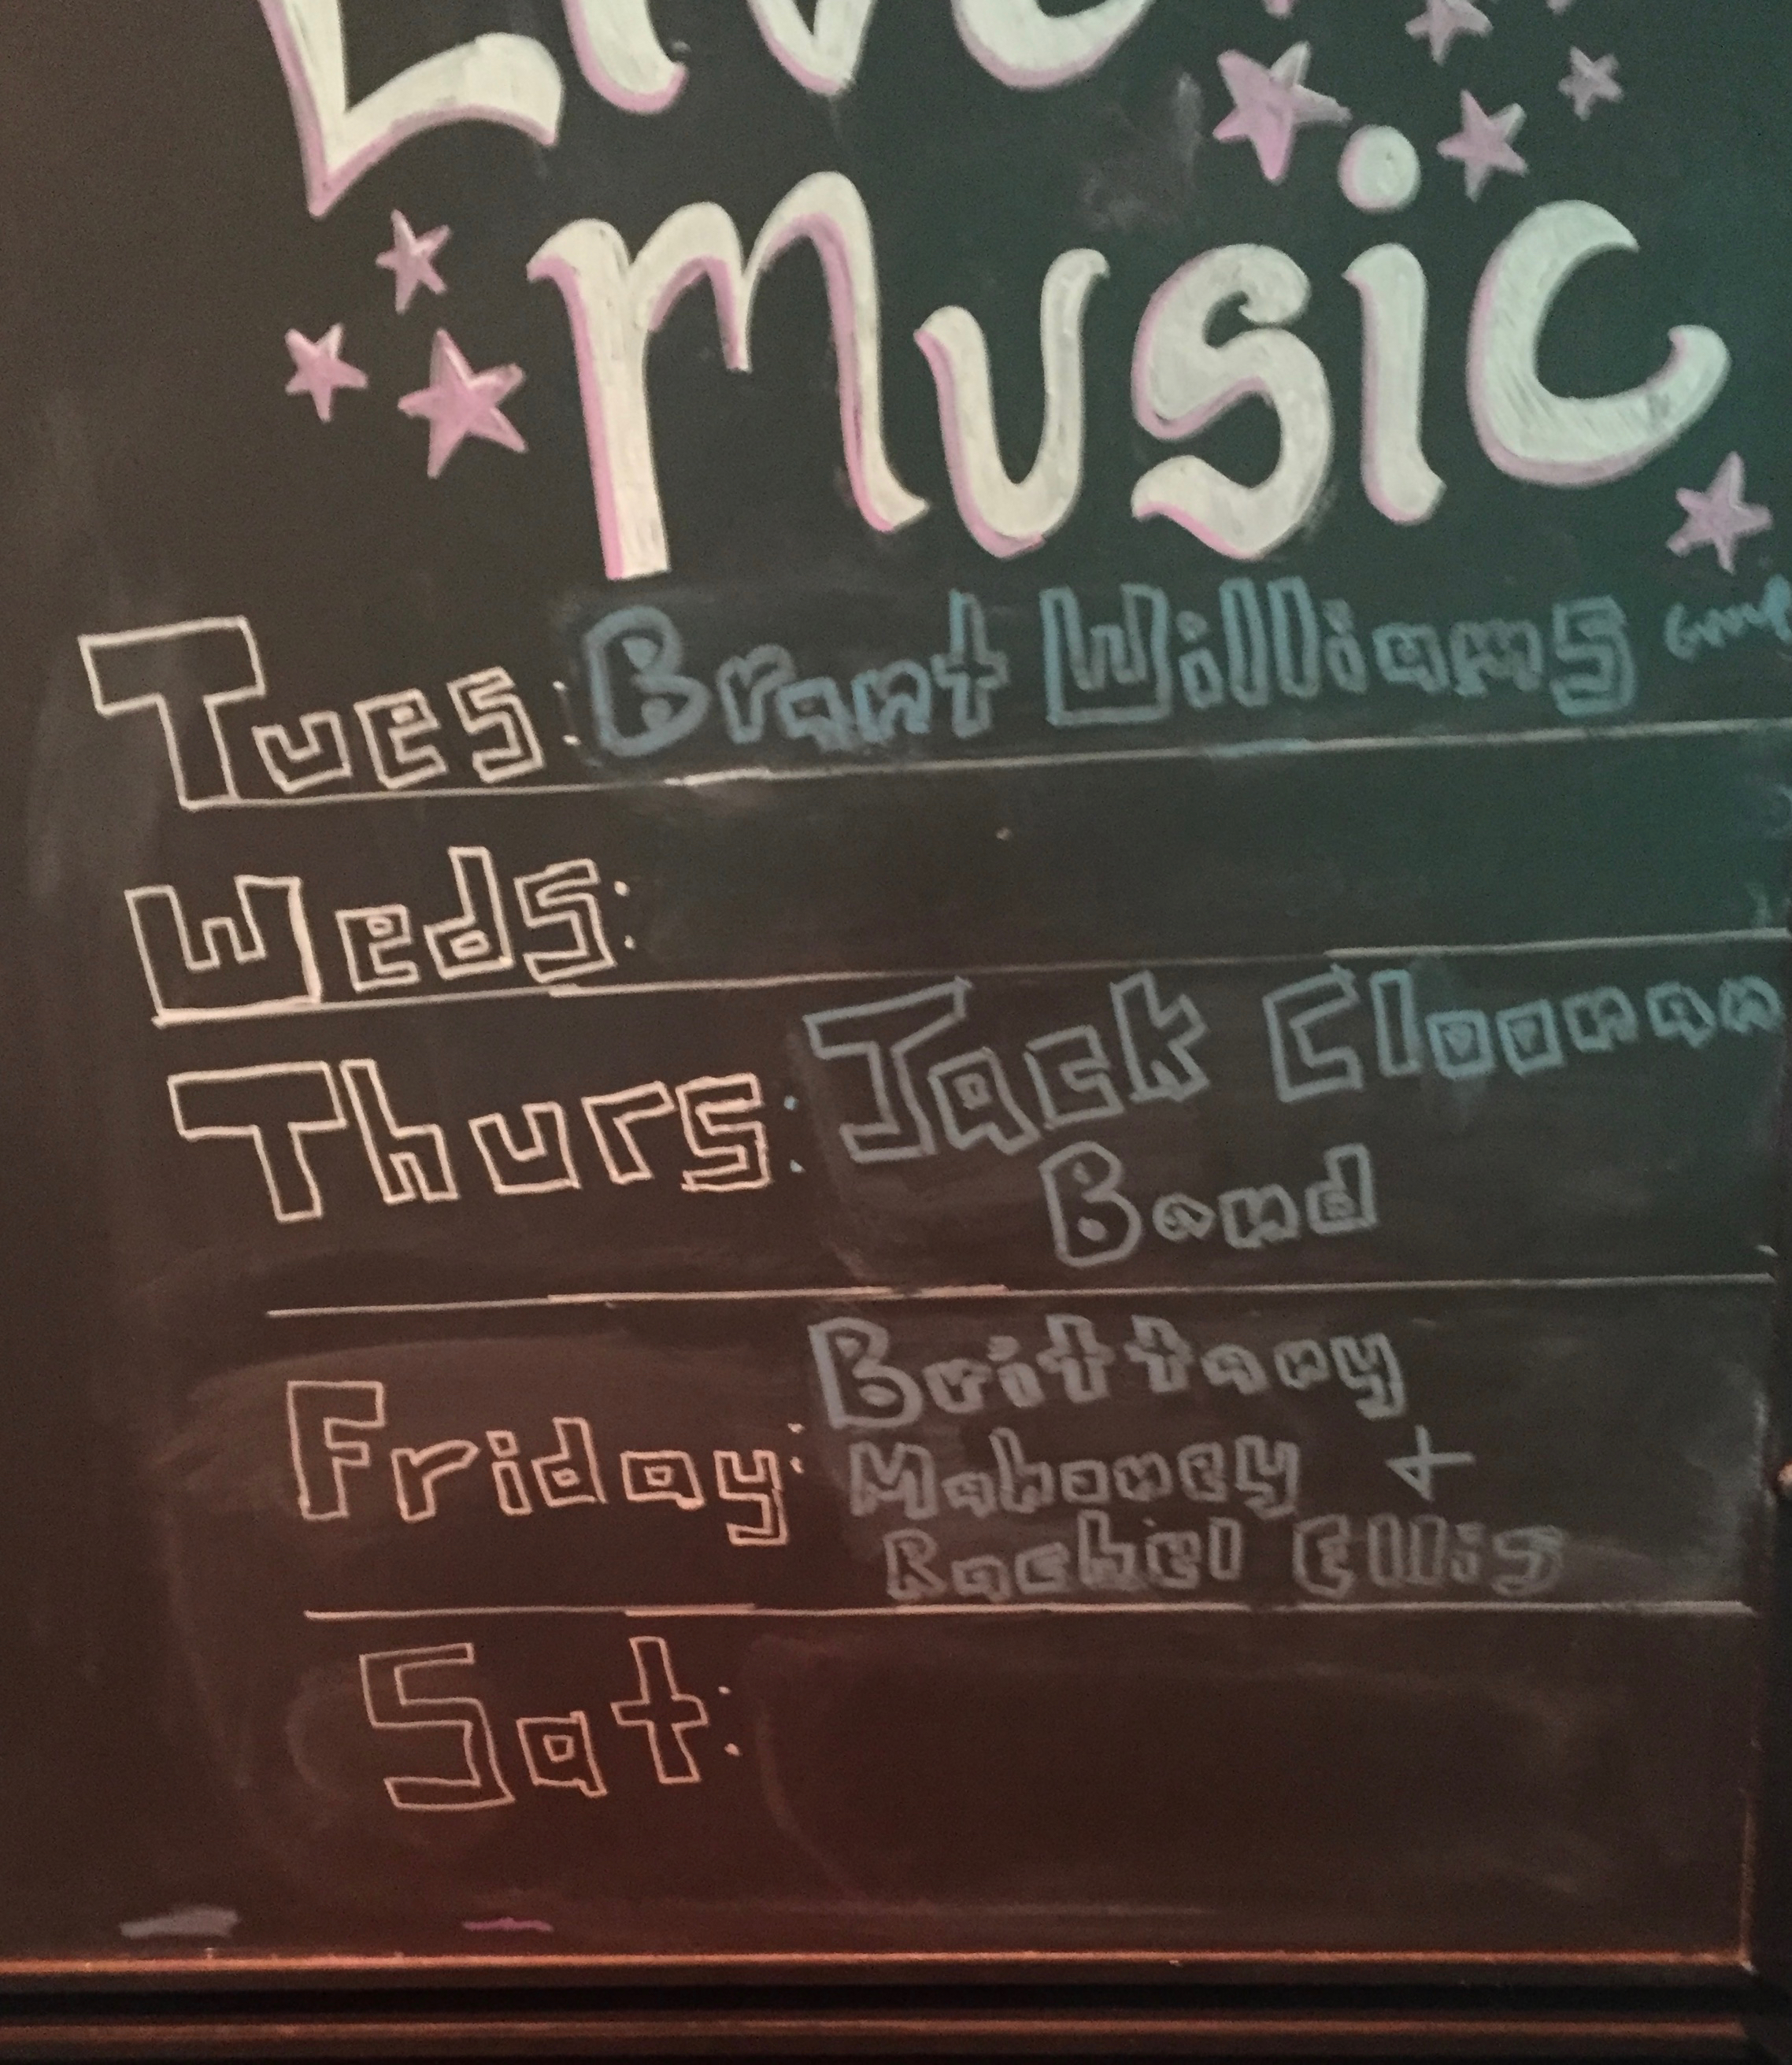 Live
Music
Tues: Brant Williams Group
Weds:
Thurs: Jack Cloonan
Band
Friday: Brittany
Mahoney +
Rachel Ellis
Sat: